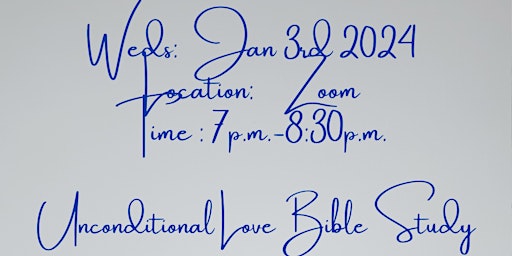 Weds: Jan 3rd 2024
Location: Zoom
Time : 7p.m.-8:30p.m.
Unconditional Love Bible Study